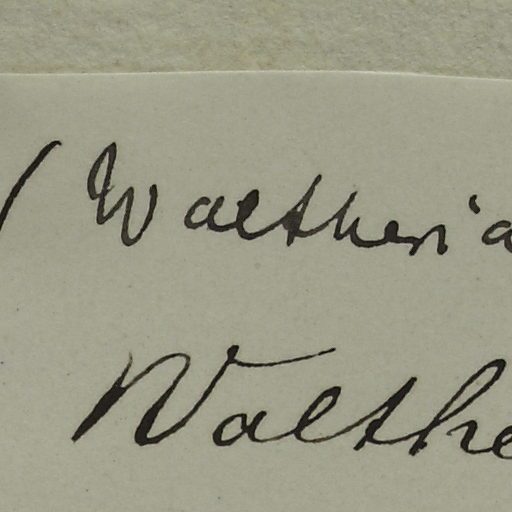 (Waltheria
Walthe